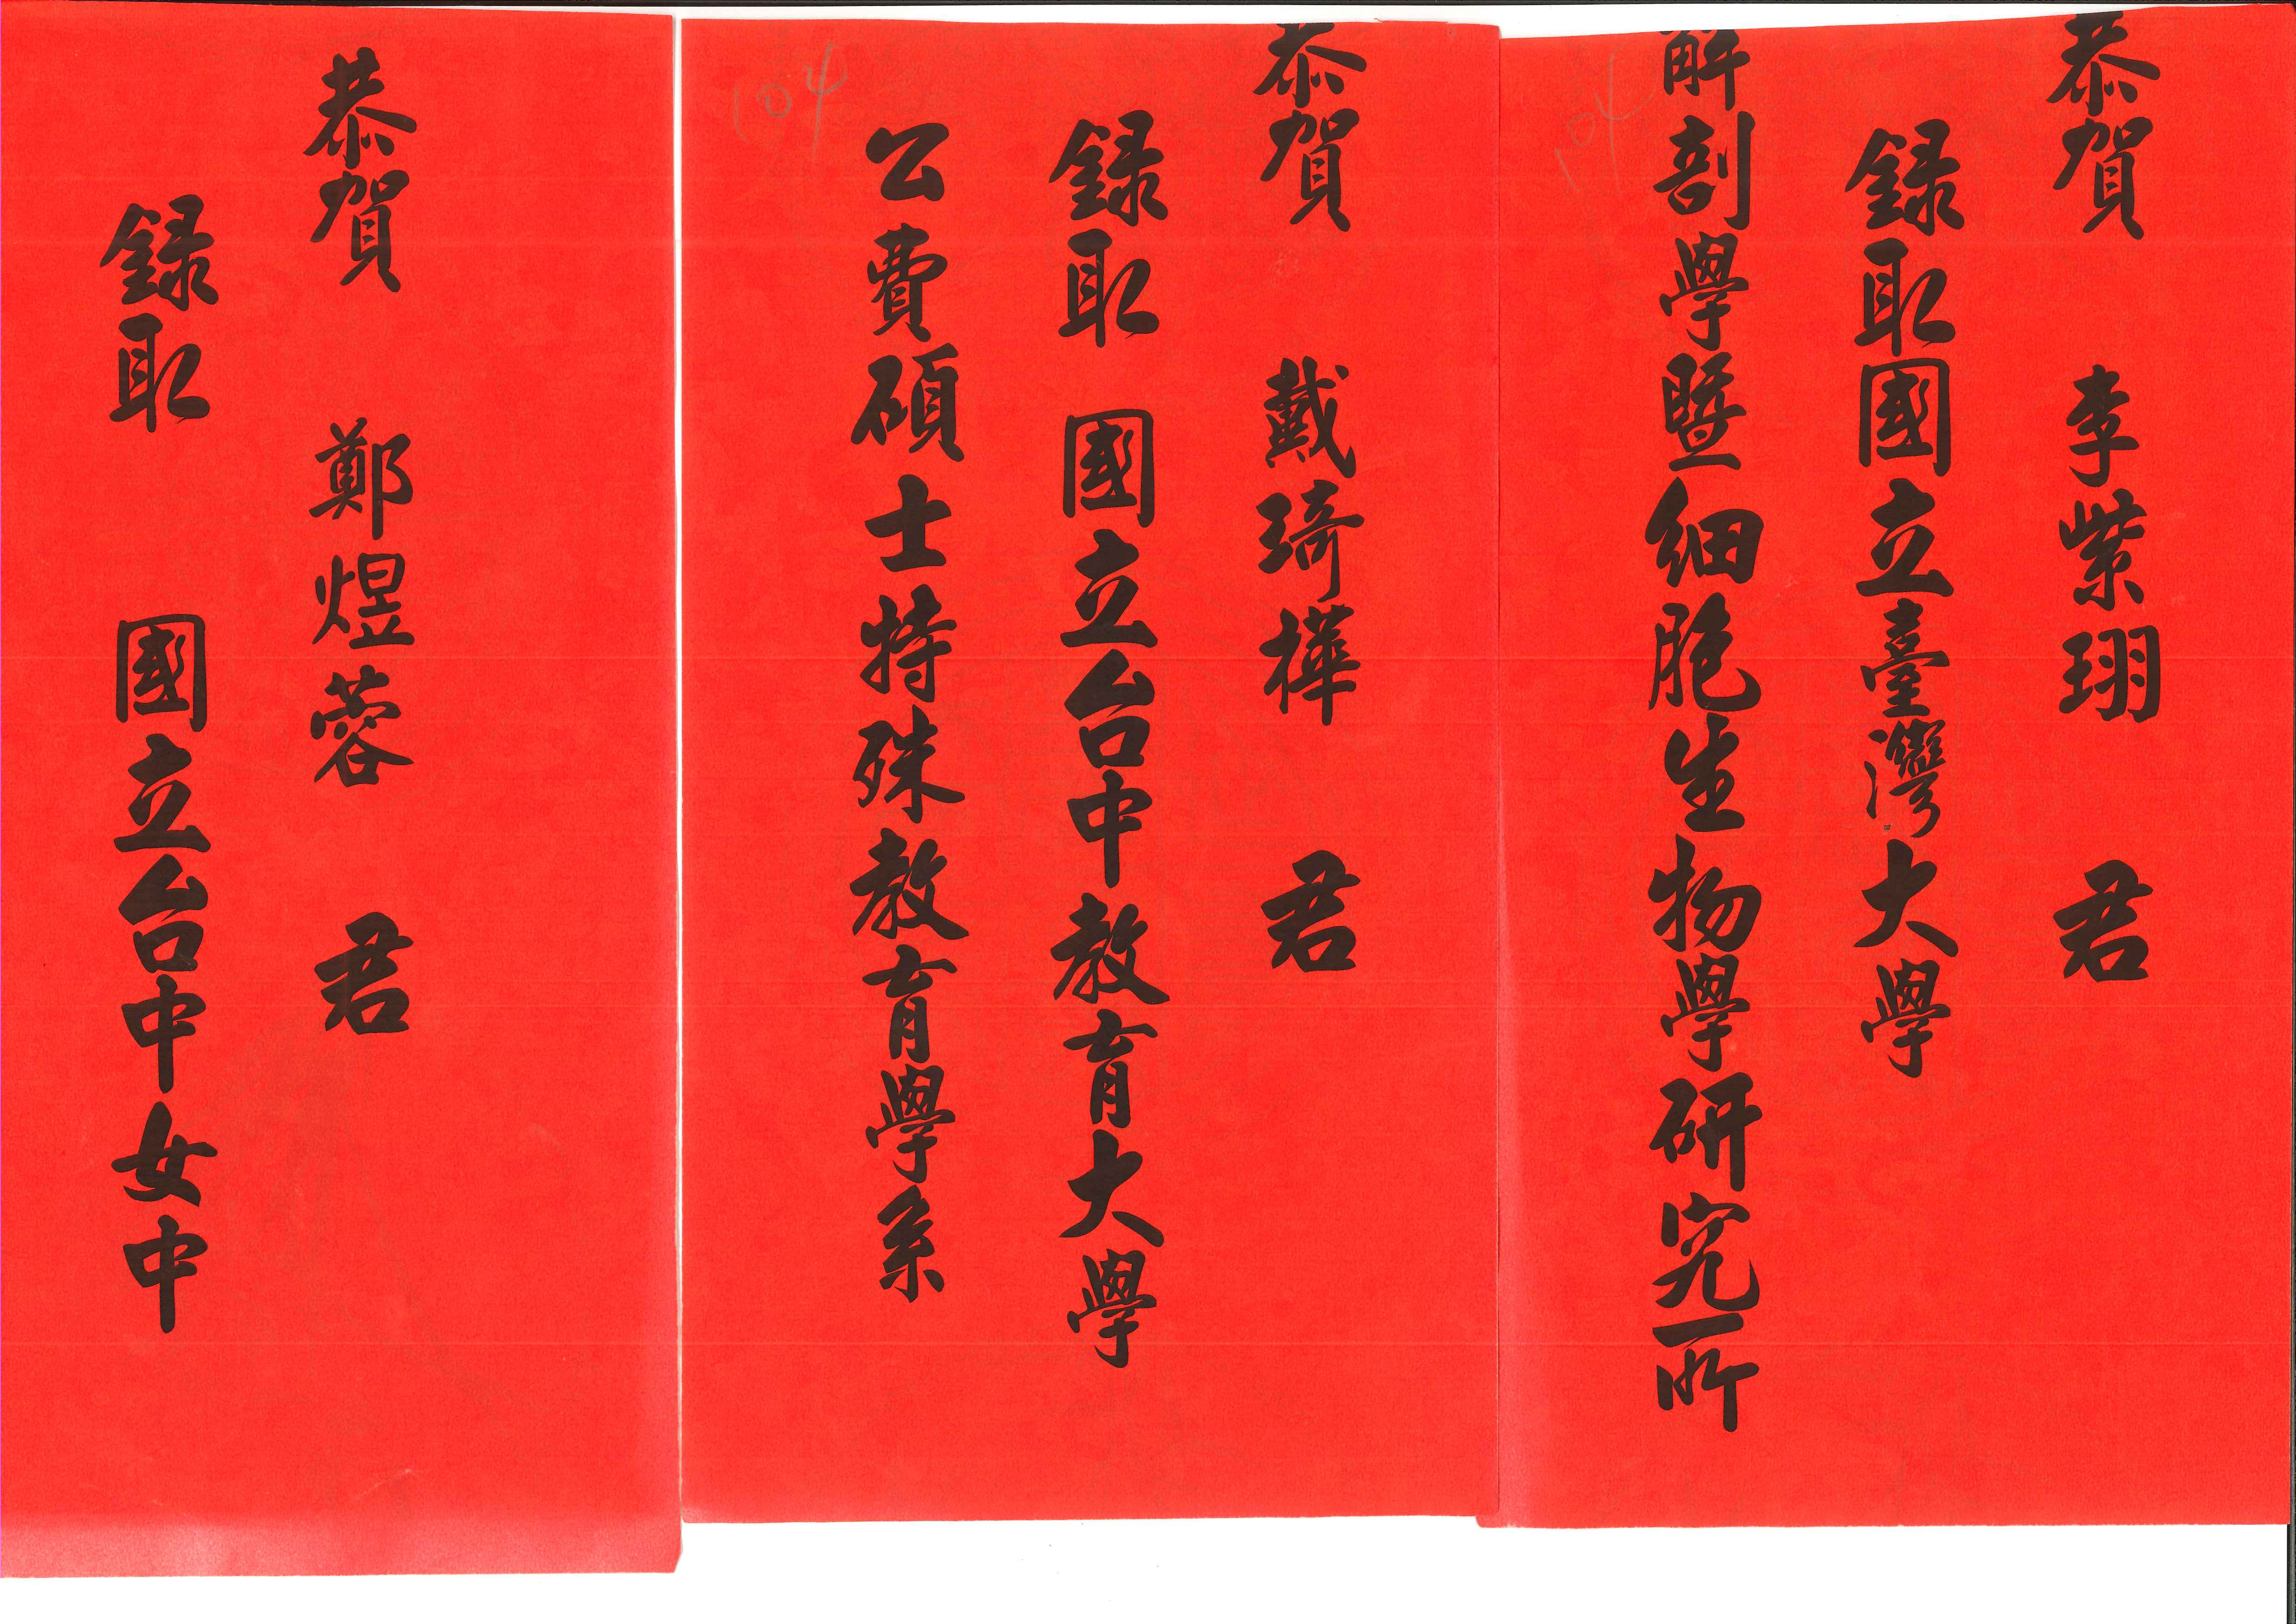 恭賀 李紫珝 君
錄取國立臺灣大學
解剖學暨細胞生物學研究所
104
恭賀 戴琦樺 君
錄取 國立台中教育大學
公費碩士特殊教育學系
104
恭賀 鄭煜蓉 君
錄取 國立台中女中